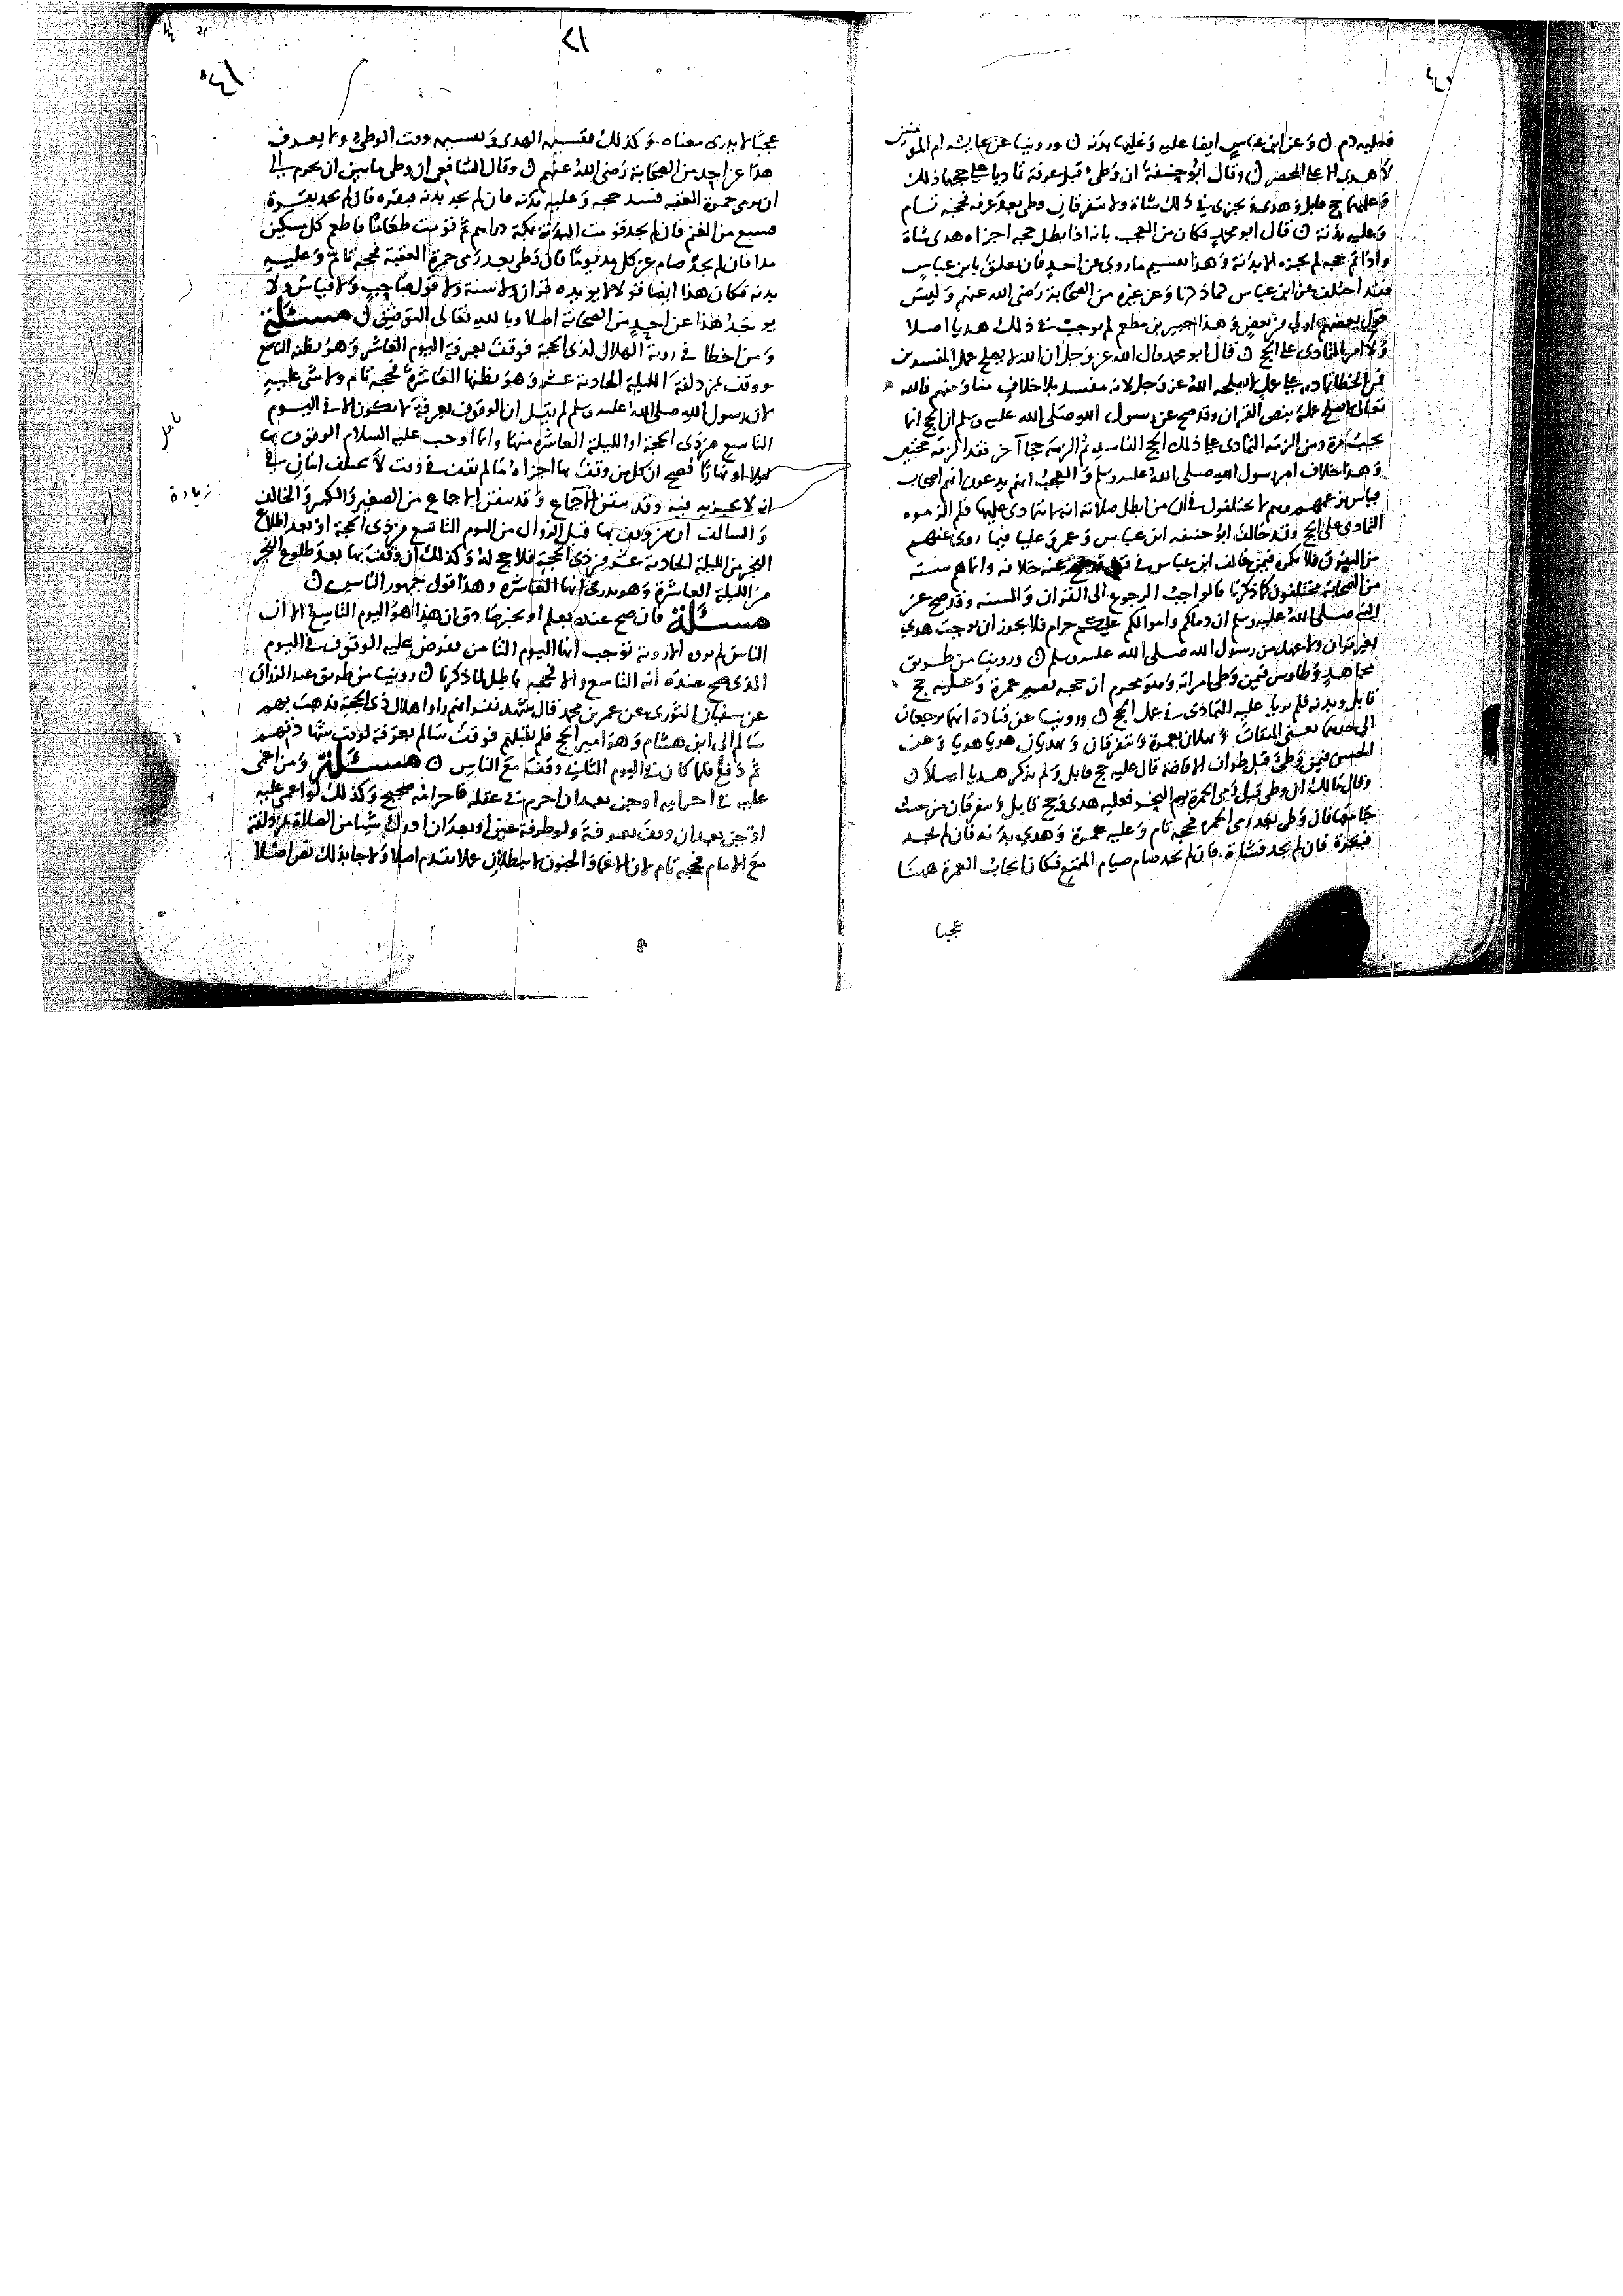 فعليه دم ن وعن ابن عباس ايضا عليه وعليها بدنه ن وروينا عن عايشه ام المومنين
لا هدى الا على المحصر ن وقال ابو حنيفة ان وطئ قبل عرفة تماديا على حجهما ذلك
وعليهما حج قابل وهدى ويجزى في ذلك شاة ولا يتفرقان وان وطى بعد عرفه فحجه تام
وعليه بدنة ن قال ابو محمد فكان من العجب بانه اذا بطل حجه اجزاه هدى شاة
واذا تم حجه لم يجزه الا بدنة وهذا تقسيم ما روى عن احد فان تعلق بابن عباس
فقد اختلف عن ابن عباس كما ذكرنا وعن غيره من الصحابة رضى الله عنهم وليس
قول بعضهم اولى من بعض وهذا جبير بن مطعم لم يوجب في ذلك هديا اصلا
ولا امر بالتمادى على الحج ن قال ابو محمد قال الله عز وجل ان الله لا يصلح عمل المفسدين
فمن الخطا تماديه على عمل لا يصلحه الله عز وجل لانه مفسد بلا خلاف منا ومنهم فالله
تعالى لا يصلح عمله بنص القران وقد صح عن رسول الله صلى الله عليه وسلم ان الحج انما
يجب مرة ومن الزمه التمادى على ذلك الحج الفاسد ثم الزمه حجا آخر فقد الزمه حجتين
وهذا خلاف امر رسول الله صلى الله عليه وسلم والعجب انهم يدعون انهم اصحاب
قياس بزعمهم وهم لا يختلفون في ان من ابطل صلاته انه لا يتمادى عليها فلم الزموه
التمادى على الحج وقد خالف ابو حنيفه ابن عباس وعمر وعليا فيما روى عنهم
من التفرق فلا نكره فيمن خالف ابن عباس في قول قد صح عنه خلافه وانما هم سته
من الصحابة مختلفون كما ذكرنا فالواجب الرجوع الى القران والسنه وقد صح عن
النبى صلى الله عليه وسلم ان دماكم واموالكم عليكم حرام فلا يجوز ان يوجب هدى
بغير قران ولا عهد من رسول الله صلى الله عليه وسلم ن وروينا من طريق
مجاهد وطاوس فيمن وطى امراته وهو محرم ان حجه يصير عمرة وعليه حج
قابل وبدنه فلم يريا عليه التمادى في عمل الحج ن وروينا عن قتادة انهما يرجعان
الى حدهما يعنى الميقات ويهلان بعمرة ويتفرقان ويهديان هديا هديا وعن
الحسن فيمن وطئ قبل طواف الافاضة قال عليه حج قابل ولم يذكر هديا اصلا ن
وقال مالك ان وطى قبل رمى الجمرة يوم النحر فعليه هدى وحج قابل ويتفرقان من حيث
جامعها فان وطى بعد رمى الجمره فحجه تام وعليه عمرة وهدى بدنه فان لم يجد
فبقرة فان لم يجد فشاة فان لم يجد صام صيام المتمتع فكان ايجاب العمرة ههنا
عجبا
عجبا لا يدرى معناه وكذلك تقسيمه الهدى وتقسيمه وقت الوطئ ولا يعرف
هذا عن احد من الصحابة رضى الله عنهم ن وقال الشافعى ان وطى ما بين ان يحرم الى
ان يرمى جمرة العقبه فسد حجه وعليه بدنه فان لم يجد بدنه فبقره فان لم يجد بقرة
فسبع من الغنم فان لم يجد قومت البدنة بمكة دراهم ثم قومت طعاما فاطعم كل مسكين
مدا فان لم يجد صام عن كل مد يوما فان وطى بعد رمى جمرة العقبة فحجه تام وعليه
بدنه فكان هذا ايضا قولا لا يويده قران ولا سنة ولا قول صاحب ولا قياس ولا
يوجد هذا عن احد من الصحابة اصلا وبالله تعالى التوفيق ن مسئلة
ومن اخطا في روية الهلال لذى الحجة فوقف بعرفة اليوم العاشر وهو يظنه التاسع
ووقف بمزدلفة الليلة الحادية عشر وهو يظنها العاشرة فحجه تام ولا شى عليه
لان رسول الله صلى الله عليه وسلم لم يقل ان الوقوف بعرفة لا يكون الا في اليوم
التاسع من ذى الحجة او الليلة العاشرة منها وانما اوجب عليه السلام الوقوف بها
ليلا او نهارا فصح ان كل من وقف بها اجزاه ما لم يقف في وقت لا يختلف اثنان في
انه لا يجزيه فيه وقد تيقن الاجماع وقد تيقن الاجماع من الصغير والكبير والخالف
والسالف ان من وقف بها قبل الزوال من اليوم التاسع من ذى الحجة او بعد طلوع
الفجر من الليلة الحادية عشر من ذى الحجة فلا حج له وكذلك ان وقف بها بعد طلوع الفجر
من الليلة العاشرة وهو يدرى انها العاشره وهذا قول جمهور الناس ن
مسئلة فان صح عنده بعلم او بخبر صادق ان هذا هو اليوم التاسع الا ان
الناس لم يروه الا روية توجب انها اليوم الثامن ففرض عليه الوقوف في اليوم
الذى صح عنده انه التاسع والا فحجه باطل لما ذكرنا ن روينا من طريق عبد الرزاق
عن سفيان الثورى عن عمر بن محمد قال شهد نفر انهم راوا هلال ذى الحجة فذهب بهم
سالم الى ابن هشام وهو امير الحج فلم يقبلهم فوقف سالم بعرفة لوقت شهادتهم
ثم دفع فلما كان في اليوم الثانى وقف مع الناس ن مسئلة ومن اغمى
عليه في احرامه او جن بعد ان احرم في عقله فاحرامه صحيح وكذلك لو اغمى عليه
او جن بعد ان وقف بعرفة ولو طرفة عين او بعد ان ادرك شيا من الصلاة بمزدلفة
مع الامام فحجه تام لان الاغما والجنون لا يبطلان عملا تقدم اصلا ولا جا بذلك نص اصلا
زيادة